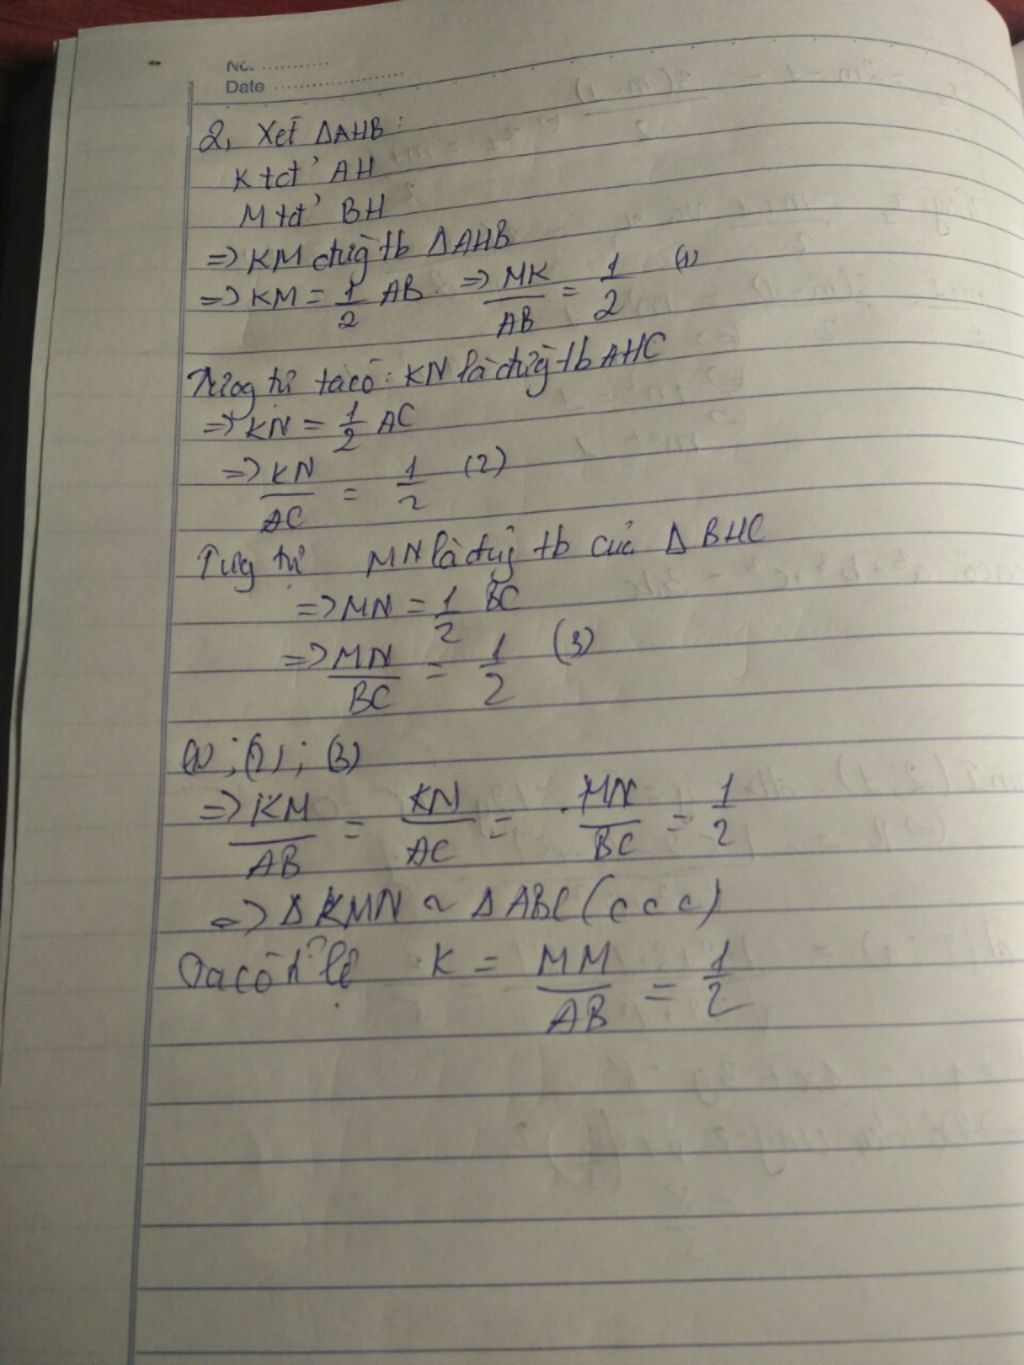 No. ..........
Date ....................
2, Xét ΔAHB:
K tđ' AH
M tđ' BH
=> KM đường tb ΔAHB
=> KM = 1/2 AB => MK/AB = 1/2 (1)
Tương tự ta có: KN là đường tb AHC
=> KN = 1/2 AC
=> KN/AC = 1/2 (2)
Tương tự MN là đường tb của ΔBHC
=> MN = 1/2 BC
=> MN/BC = 1/2 (3)
(1); (2); (3)
=> KM/AB = KN/AC = MN/BC = 1/2
=> ΔKMN ~ ΔABC (c c c)
Ta có tỉ lệ K = MM/AB = 1/2